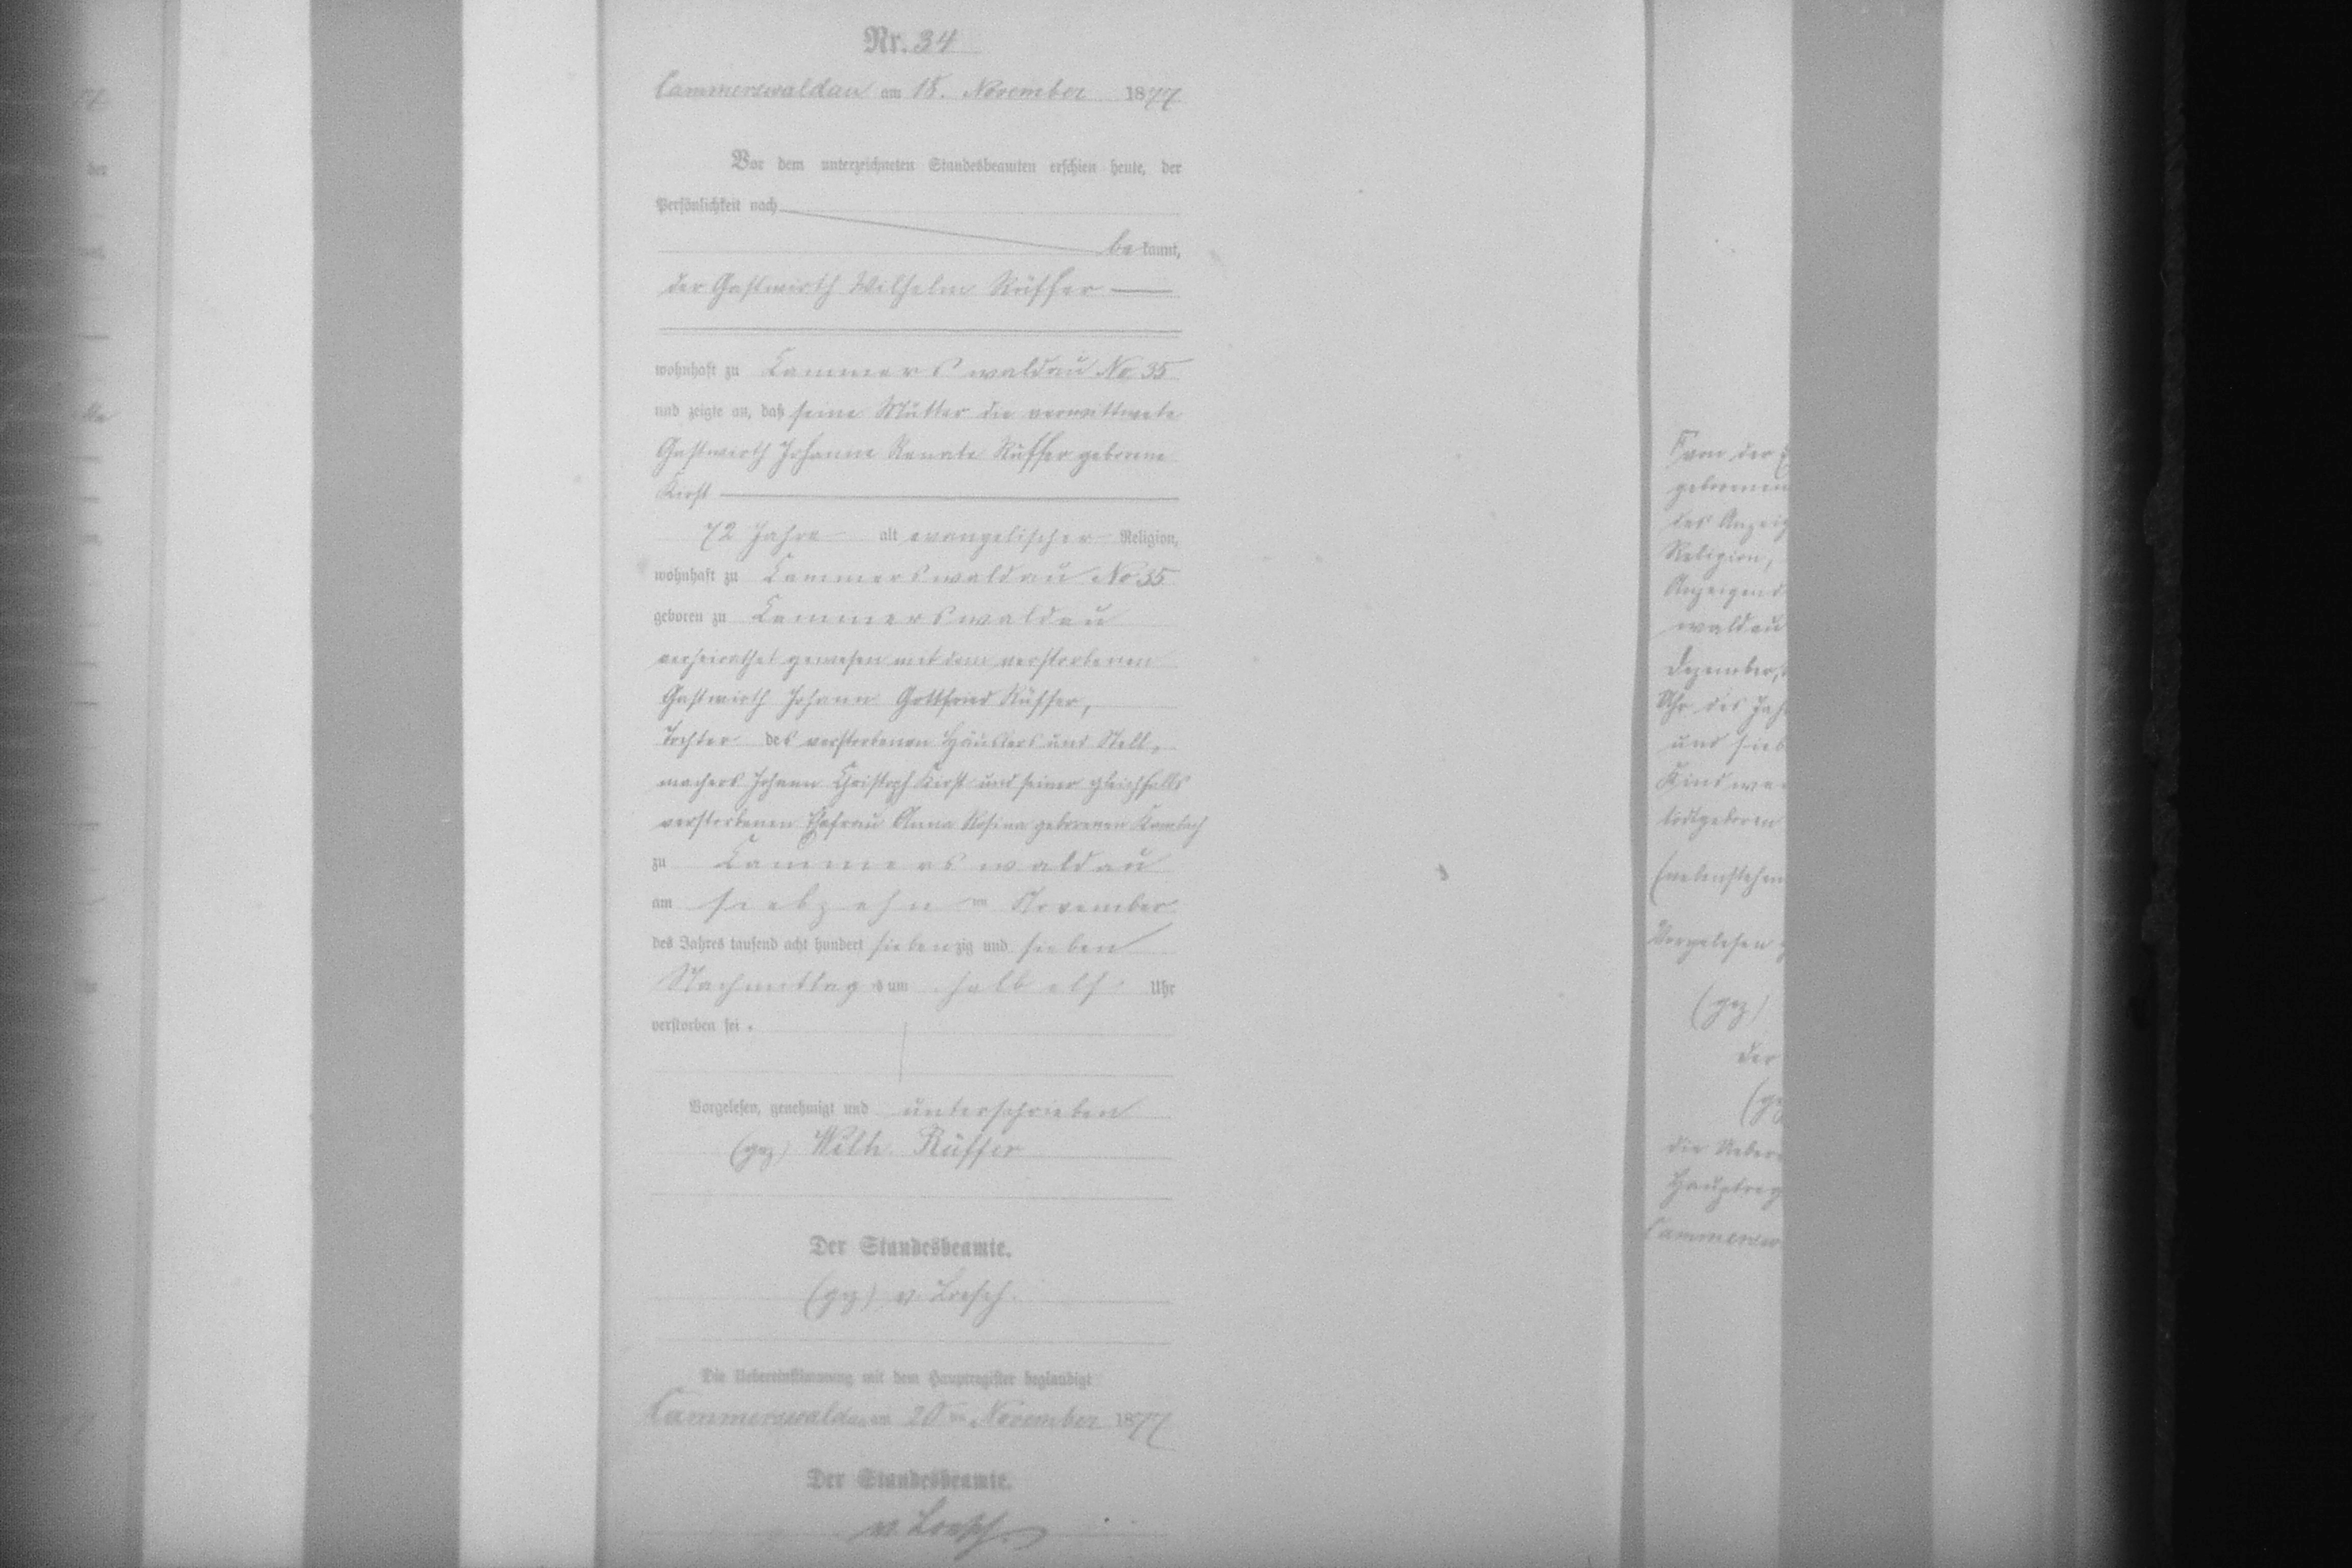 Nr. 34
Cammerswaldau am 18. November 1877
Vor dem unterzeichneten Standesbeamten erschien heute, der
Persönlichkeit nach
bekannt,
der Gastwirth Wilhelm Rüffer
wohnhaft zu Cammerswaldau No 35
und zeigte an, daß seine Mutter die verwittwete
Gastwirth Johanne Renate Rüffer geborene
Kirst
72 Jahre alt evangelischer Religion,
wohnhaft zu Cammerswaldau No 35
geboren zu Cammerswaldau
verheirathet gewesen mit dem verstorbenen
Gastwirth Johann Gottfried Rüffer,
Tochter des verstorbenen Häuslers und Stell-
machers Johann Christoph Kirst und seiner gleichfalls
verstorbenen Ehefrau Anna Rosina geborenen
zu Cammerswaldau
am siebzehnten November
des Jahres tausend acht hundert siebenzig und sieben
Nachmittags um halb elf Uhr
verstorben sei.
Vorgelesen, genehmigt und unterschrieben
(gez) Wilh. Rüffer
Der Standesbeamte.
(gez) v. Loesch.
Die Uebereinstimmung mit dem Hauptregister beglaubigt
Cammerswaldau am 20ten November 1877
Der Standesbeamte.
v. Loesch.
von der
geborenen
des Anzeig
Religion,
Anzeigend
waldau
Dezember,
Uhr des Jah
und sieb
Kind
todtgeboren
(nebenstehen
Vorgelesen
(gez)
Der
(ge
Die Ueber
Hauptreg
Cammersw